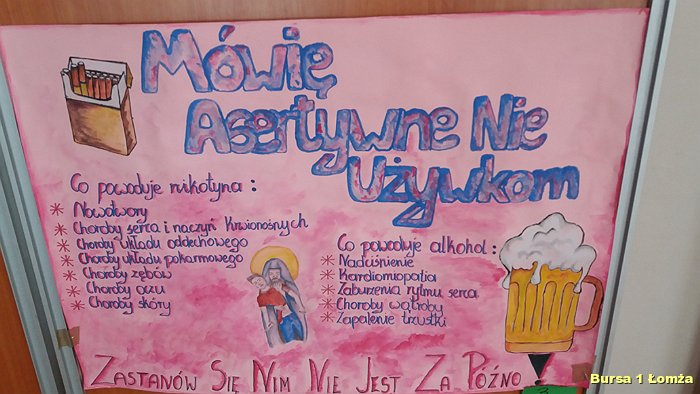 Mówię
Asertywne Nie
Używkom
Co powoduje nikotyna :
* Nowotwory
* Choroby serca i naczyń krwionośnych
* Choroby układu oddechowego
* Choroby układu pokarmowego
* Choroby zębów
* Choroby oczu
* Choroby skóry
Co powoduje alkohol :
* Nadciśnienie
* Kardiomiopatia
* Zaburzenia rytmu serca
* Choroby wątroby
* Zapalenie trzustki
Zastanów Się Nim Nie Jest Za Późno
Bursa 1 Łomża